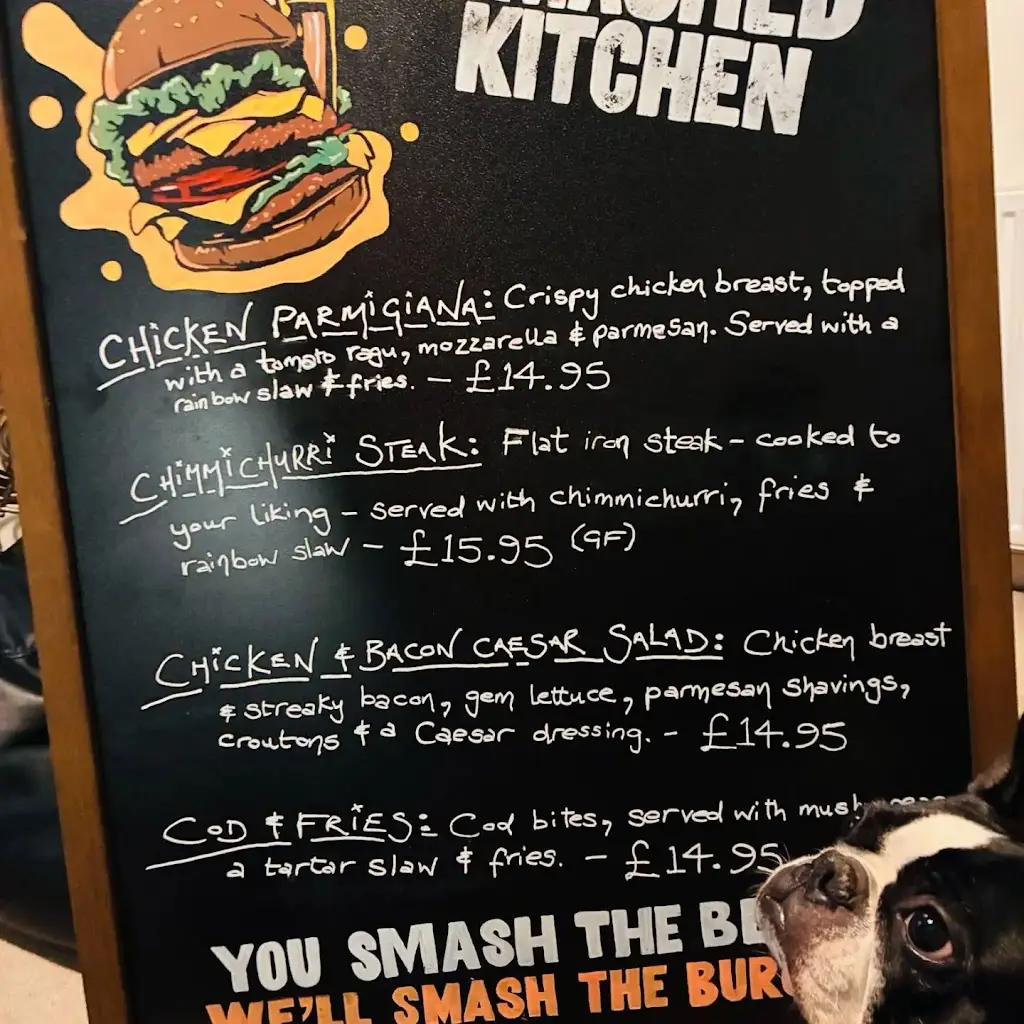 KITCHEN
CHICKEN PARMIGIANA: Crispy chicken breast, topped
with a tomato ragu, mozzarella & parmesan. Served with a
rainbow slaw & fries. - £14.95
CHIMMICHURRI STEAK: Flat iron steak - cooked to
your liking - served with chimmichurri, fries &
rainbow slaw - £15.95 (GF)
CHICKEN & BACON CAESAR SALAD: Chicken breast
& streaky bacon, gem lettuce, parmesan shavings,
croutons & a Caesar dressing. - £14.95
COD & FRIES: Cod bites, served with
a tartar slaw & fries. - £14.95
YOU SMASH THE
WE'LL SMASH THE